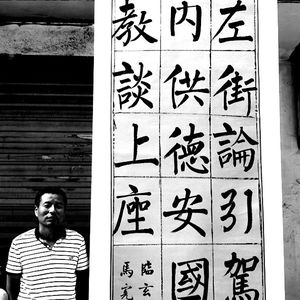 左街論引駕
內供德安國
教談上座
臨玄
馬完